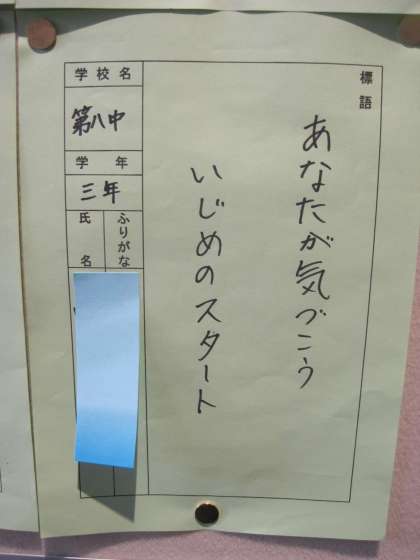 標語
あなたが気づこう
いじめのスタート
学校名
第八中
学年
三年
ふりがな
氏名